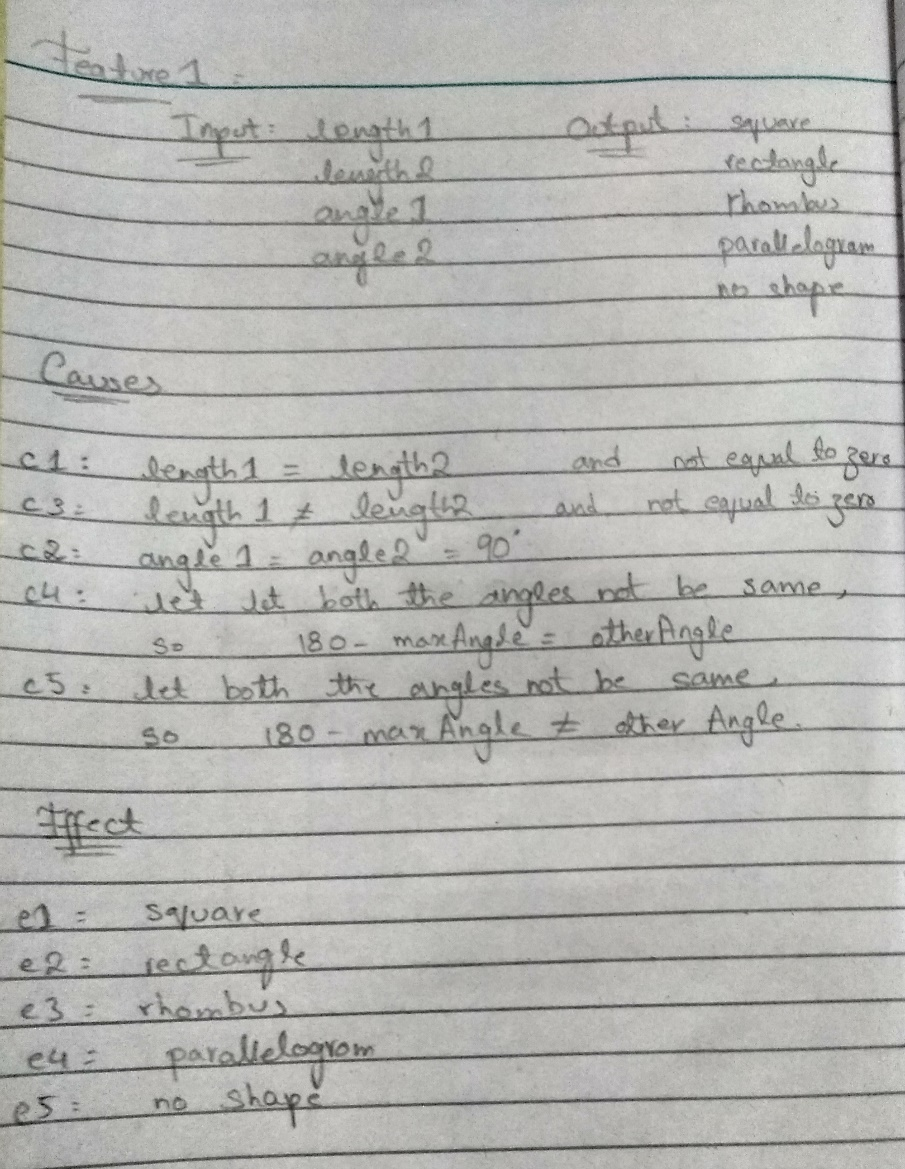 Feature 1 :
Input : length 1 Output : square
length 2 rectangle
angle 1 rhombus
angle 2 parallelogram
no shape
Causes
c1 : length 1 = length 2 and not equal to zero
c3 : length 1 ≠ length 2 and not equal to zero
c2 : angle 1 = angle 2 = 90°
c4 : let let both the angles not be same,
so 180 - maxAngle = otherAngle
c5 : let both the angles not be same,
so 180 - maxAngle ≠ other Angle.
Effect
e1 : square
e2 : rectangle
e3 : rhombus
e4 : parallelogram
e5 : no shape